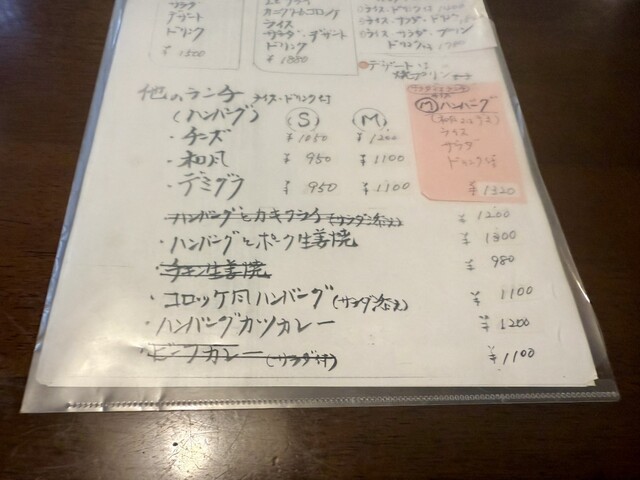 サラダ
デザート
ドリンク
¥1500
カニクリームコロッケ
ライス
サラダ・デザート
ドリンク
¥1880
ライス・サラダ・プリン
ドリンク
デザートは
焼プリン
他のランチ
ライス・ドリンク付
(ハンバーグ)
Ⓢ Ⓜ
・チーズ ¥1050 ¥1200
・和風 ¥950 ¥1100
・デミグラ ¥950 ¥1100
Ⓜハンバーグ
ライス
サラダ
ドリンク付
¥1320
ハンバーグとカキフライ(サラダ添え) ¥1200
・ハンバーグとポーク生姜焼 ¥1300
・チキン生姜焼 ¥980
・コロッケ風ハンバーグ(サラダ添え) ¥1100
・ハンバーグカツカレー ¥1200
・ビーフカレー(サラダ付) ¥1100